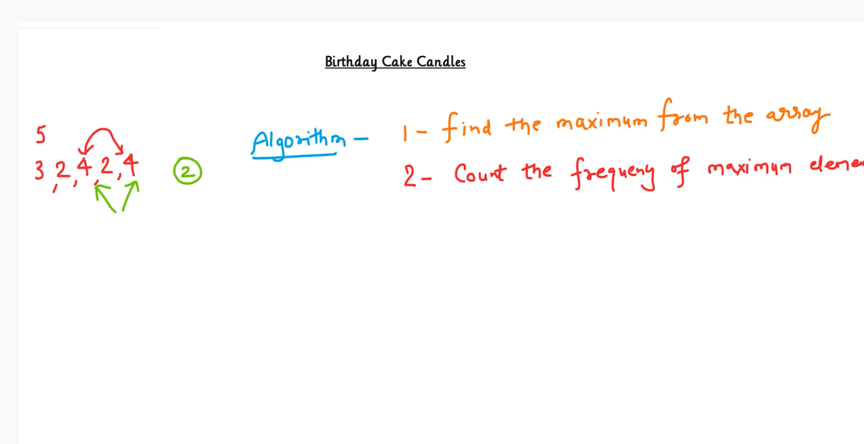 Birthday Cake Candles
5
3 2, 4, 2, 4
2
Algorithm -
1 - find the maximum from the array
2 - Count the frequeny of maximum eleme